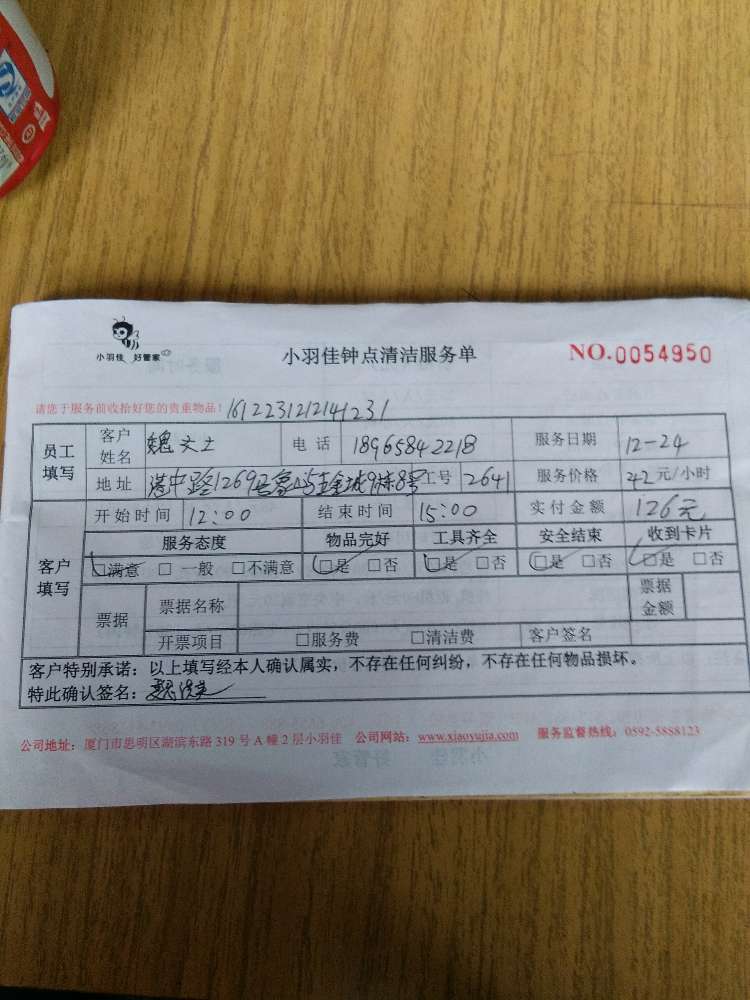 小羽佳 好管家
小羽佳钟点清洁服务单
NO.0054950
请您于服务前收拾好您的贵重物品！
员工填写 客户姓名 魏女士 电话 18965842218 服务日期 12-24
地址 港中路1269号 9栋8号 工号 2641 服务价格 42元/小时
开始时间 12:00 结束时间 15:00 实付金额 126元
客户填写 服务态度 物品完好 工具齐全 安全结束 收到卡片
□满意 □一般 □不满意 □是 □否 □是 □否 □是 □否 □是 □否
票据 票据名称 票据金额
开票项目 □服务费 □清洁费 客户签名
客户特别承诺：以上填写经本人确认属实，不存在任何纠纷，不存在任何物品损坏。
特此确认签名：
公司地址：厦门市思明区湖滨东路319号A幢2层小羽佳 公司网站：www.xiaoyujia.com 服务监督热线：0592-5888123